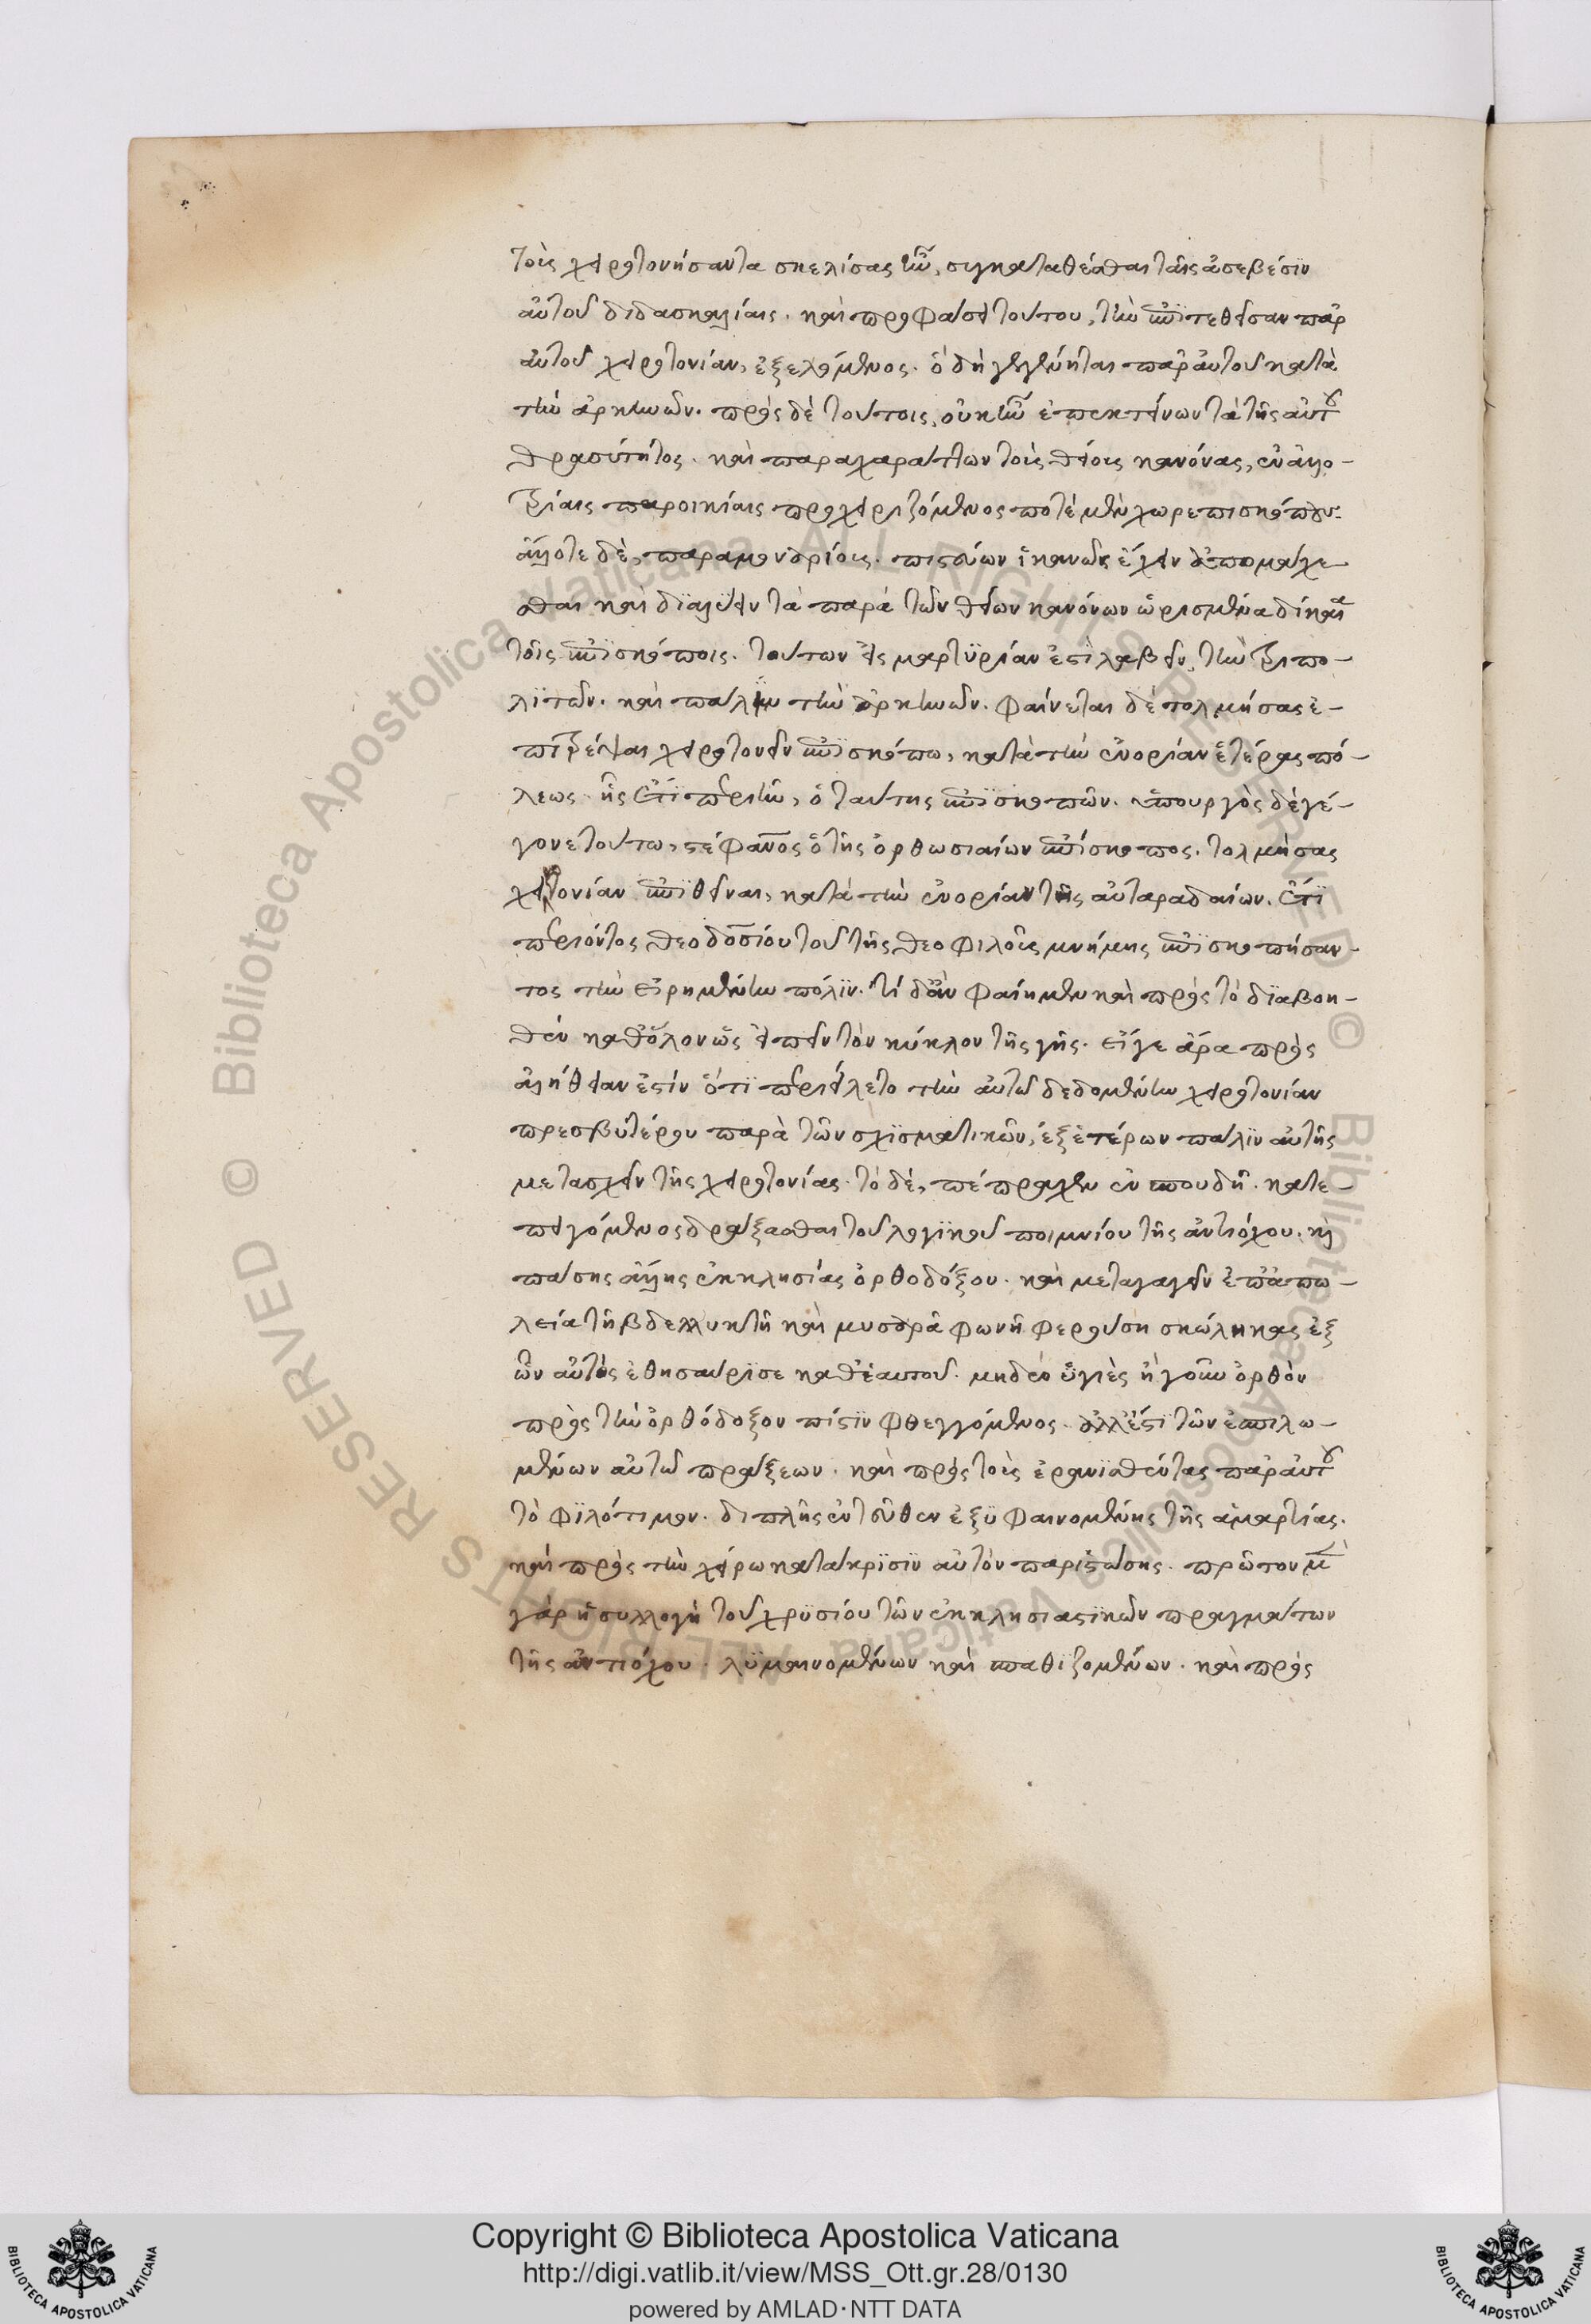 τοὺς χειροτονήσαντα σκελίσας ἦν, συγκαταθέσθαι ταῖς ἀσεβέσϊν
αὐτοῦ διδασκαλίαις. καὶ προφάσει τούτου, τὴν ἐπϊτεθεῖσαν παρ
αὐτοῦ χειροτονίαν, ἐξελόμενος. ὃ δὴ γεγένηται παρ αὐτοῦ κατὰ
τὴν ἀρκηνῶν. πρὸς δὲ τούτοις, οὐκ ἦν ἐπεκτείνων τὰ τῆς αὐτοῦ
θρασύτητος. καὶ παραχαράττων τοὺς θείους κανόνας, ἐν ἀλλο-
τρίαις παροικίαις προχειριζόμενος ποτὲ μὲν χωρεπισκόπους.
ἄλλοτε δὲ, παραμοναρίους. πιστεύων ἱκανῶς ἔχειν ἀπομάχε
σθαι καὶ διαλύειν τὰ παρὰ τῶν θείων κανόνων ὡρισμένα δίκαια
τοῖς ἐπϊσκόποις. τούτων εἰς μαρτϋρίαν ἐστὶ λαβεῖν, τὴν τριπο-
λϊτῶν. καὶ πάλϊν τὴν ἀρκηνῶν. φαίνεται δὲ τολμήσας ἐ-
πϊτρέψαι χειροτονεῖν ἐπϊσκόπω, κατὰ τὴν ἐνορίαν ἑτέρας πό-
λεως. ἧς ἔτϊ περιῆν, ὁ ταύτης ἐπϊσκοπῶν. ὑπουργὸς δὲ γέ-
γονε τούτω, στέφανος ὁ τῆς ὀρθωσιαίων ἐπίσκοπος. τολμήσας
χειροτονίαν ἐπϊθεῖναι, κατὰ τὴν ἐνορίαν τῆς ἀνταραδαίων. ἔτϊ
περιόντος θεοδοσίου τοῦ τῆς θεοφιλοῦς μνήμης ἐπϊσκοπήσαν-
τος τὴν εἰρημένην πόλϊν. τί δἂν φαίημεν καὶ πρὸς τὸ δϊαβοη-
θὲν καθόλον ὡς εἰπεῖν τὸν κύκλον τῆς γῆς. εἴγε ἄρα πρὸς
ἀλήθειαν ἐστίν ὅτϊ περιείλετο τὴν αὐτῶ δεδομένην χειροτονίαν
πρεσβυτέρου παρὰ τῶν σχϊσματικῶν, ἐξ ἑτέρων πάλϊν αὐτῆς
μετασχεῖν τῆς χειροτονίας. τὸ δὲ, πέπραχεν ἐν σπουδῆ. κατε-
πειγόμενος δράξασθαι τοῦ λογϊκοῦ ποιμνίου τῆς ἀντιόχου. καὶ
πάσης ἄλλης ἐκκλησίας ὀρθοδόξου. καὶ μεταγαγεῖν ἐπἀπω-
λεία τῆ βδελλυκτῆ καὶ μυσαρᾶ φωνῆ φερούση σκώληκας ἐξ
ὧν αὐτὸς ἐθησαύρϊσε καθἑαυτοῦ. μηδὲν ὑγιὲς ἤγουν ὀρθὸν
πρὸς τὴν ὀρθόδοξον πίστϊν φθεγγόμενος. ἀλλἔστϊ τῶν ἐπιλω-
μένων αὐτῶ πράξεων. καὶ πρὸς τοὺς ἐρανϊσθέντας παρ αὐτοῦ
τὸ φϊλότιμον. διπλῆς ἐντεῦθεν ἐξϋφαινομένης τῆς ἁμαρτίας.
καὶ πρὸς τὴν χείρω κατάκρϊσϊν αὐτὸν παριστώσης. πρῶτον μὲν
γὰρ ἡ συλλογὴ τοῦ χρϋσίου τῶν ἐκκλησιαστϊκῶν πραγμάτων
τῆς ἀντιόχου. λϋμαινομένων καὶ σπαθϊζομένων. καὶ πρὸς
Copyright © Biblioteca Apostolica Vaticana
http://digi.vatlib.it/view/MSS_Ott.gr.28/0130
powered by AMLAD·NTT DATA